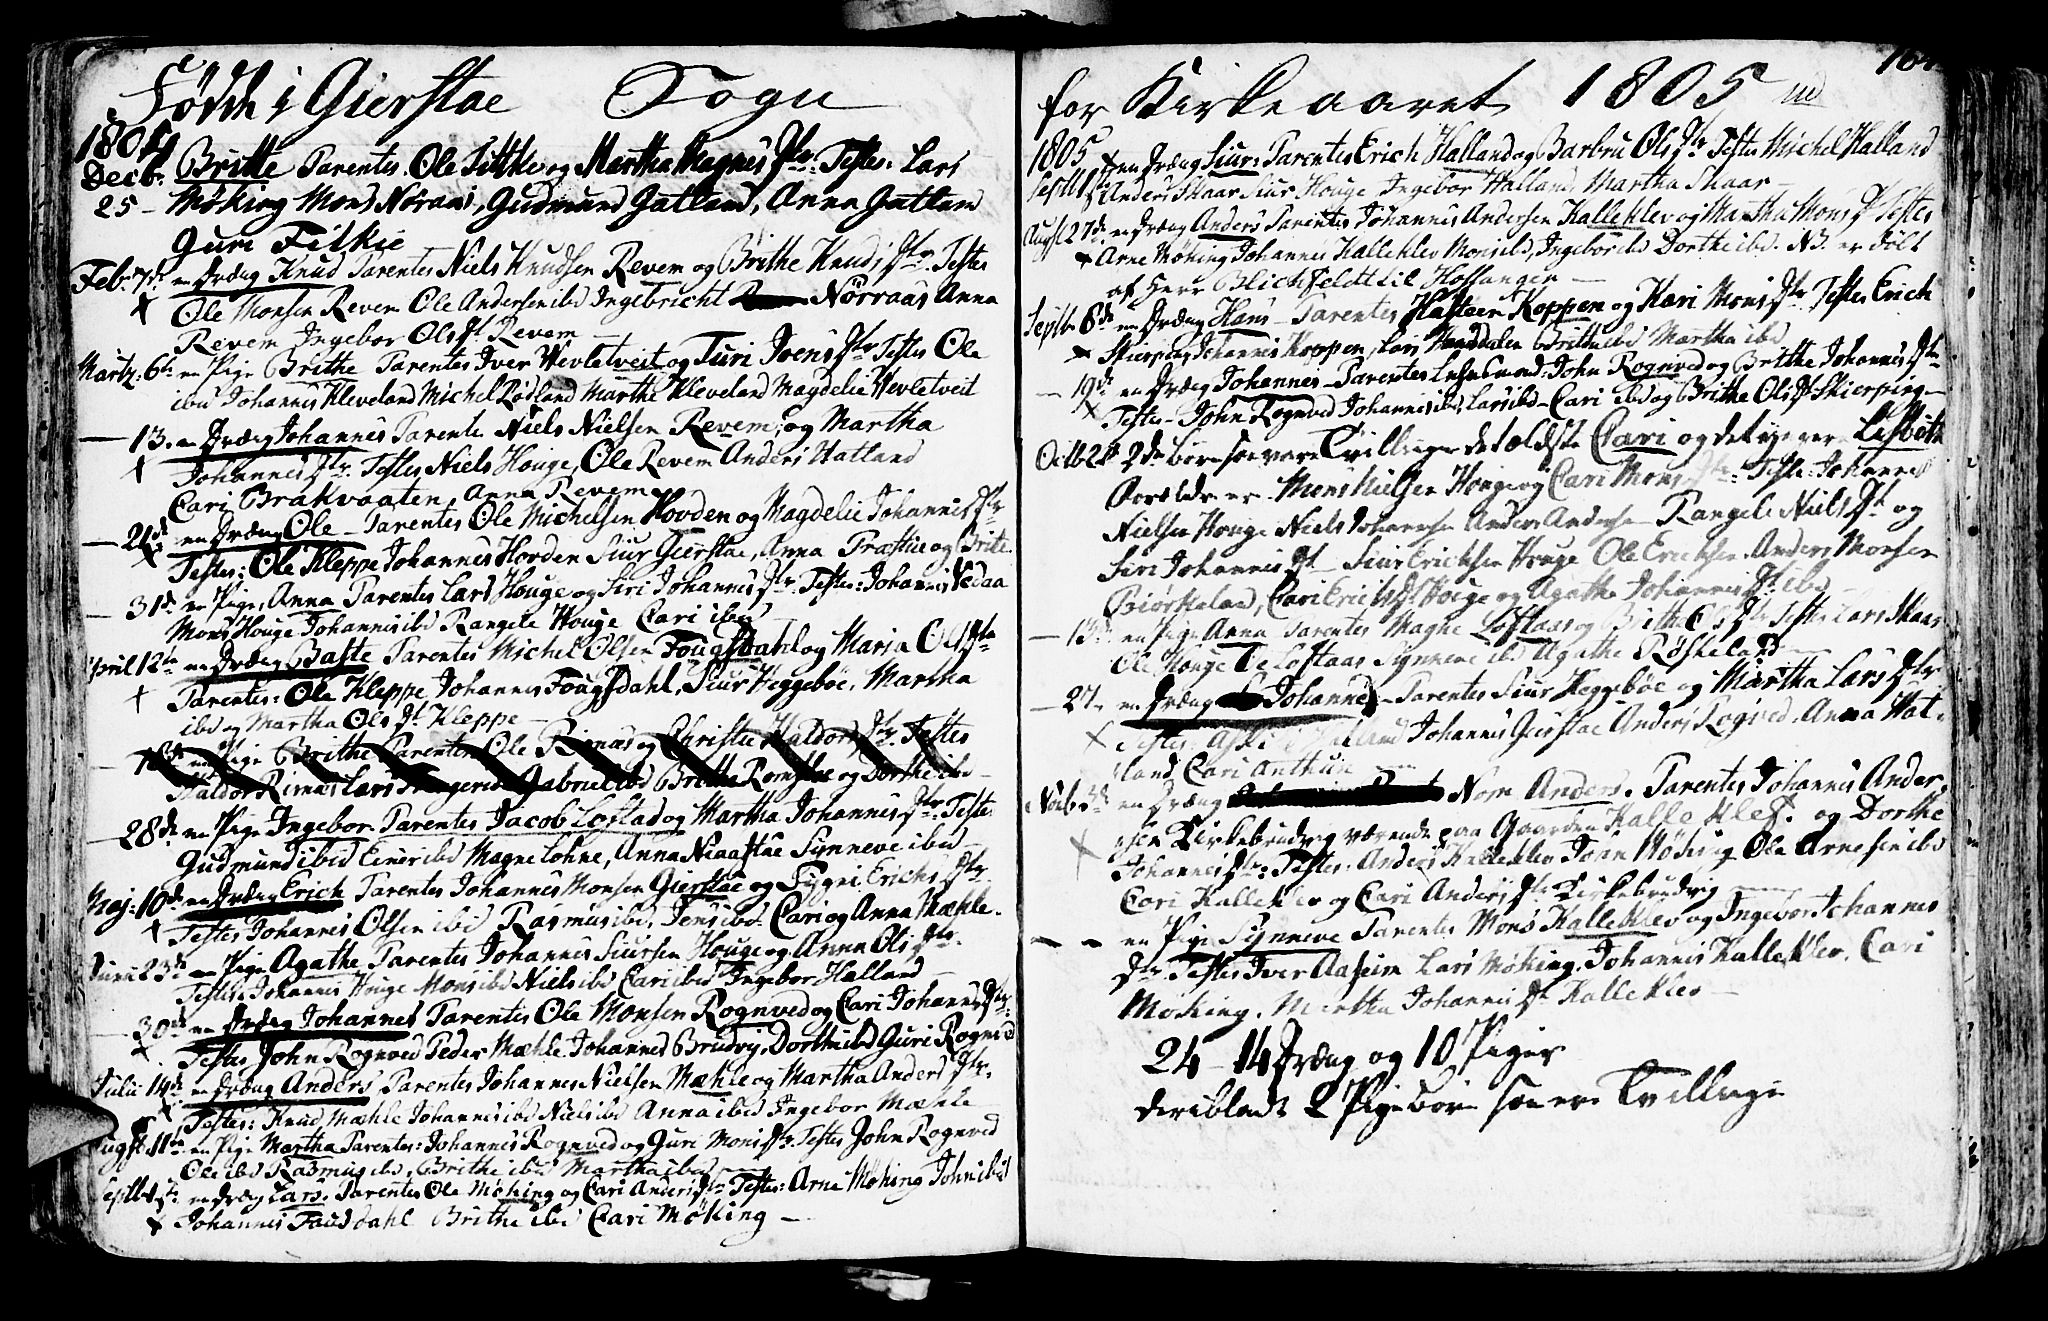 Fødde i Gierstae Sogn
1804
Decb: Britte Parentes. Ole Littke og Martha Magnus Dtr: Testes: Lars
25 – Møking Mons Nöraas, Gudmund Gatland, Anna Gatland
Guri Filkie
Feb: 7de en Dræng Knud Parentes Niels Knudsen Revem og Brithe Knuds Dtr. Testes
Ole Monsen Revem Ole Andersen ibd Ingebricht Nörraas Anna
Revem Ingebor Ols Dt Revem
Martz. 6te en Pige Brithe Parentes Iver Hevletveit og Turi Joens Dtr Testes Ole
ibd Johannes Kleveland Michel Rødland Marthe Kleveland Magdelie Hevletveit
– 13. en Dræng Johannes Parente Niels Nielsen Revem, og Martha
Johannes Dtr. Testes Niels Houge, Ole Revem Anders Hatland
Cari Brakvaaten, Anna Revem
– 21de en Dræng Ole – Parentes Ole Michelsen Hovden og Magdelie Johannis Dtr
Testes: Ole Kleppe Johannes Horden Siur Gierstae, Anna Præstiie og Brite
– 31de en Pige, Anna Parentes Lars Houge og Siri Johannes Dtr. Testes: Johannes Vedaa
Mons Houge Johannes ibd Rangele Houge Cari ibd
April 12te en Dræng Baste Parentes Michel Olsen Fougsdahl og Maria Ols Dtr
Parentes: Ole Kleppe Johannes Fougsdahl, Siur Heggebøe, Martha
ibd og Martha Ols Dt Kleppe
– en Pige Brithe Parentes Ole Rimas og Christie Haldors Dtr. Testes
Haldor Rimas Lars Gabriel ibd Britha Romslae og Dorthe ibd
– 28de en Pige Ingebor. Parentes Jacob Loflad og Martha Johannes Dtr. Testes
Gudmund ibid Einer ibd Magne Lohne, Anna Niaastae Synneve ibd
Maj: 10de en Dræng Erich Parentes Johannes Monsen Gierstae og Sygni Erichs Dtr
Testes Johannes Olsen ibd Rasmus ibd, Jens ibd. Cari og Anna Mæhle.
Junii 23de en Pige Agathe Parentes Johannes Siursen Houge og Anna Ols Dtr.
Testes. Johannes Houge Mons ibd Niels ibd Cari ibd Ingebor Halland
– 30te en Dræng Johannes Parentes Ole Monsen Rognved og Cari Johannes Dtr:
Testes John Rognved Peder Mæhle. Johannes Brudvig, Dorthe ibd Guri Rognved
Julii 14de en Dræng Anders Parentes Johannes Nielsen Mæhle og Martha Anders Dtr.
Testes: Knud Mæhle Johannes ibd Niels ibd Anna ibd Ingebor Mæhle
Augst. 11te en Pige Martha Parentes: Johannes Rognved og Guri Mons Dtr. Testes John Rognved
Ole ibd Rasmus ibd, Brithe ibd Martha ibd
Septb 1st: en Dræng Lars. Parentes Ole Møking og Cari Anders Dtr Testes: Arne Møking John ibd
Johannes Fausdahl Brithe ibd Cari Møking –
for Kirkeaaret 1805
1805
Septb 1 en Dræng Siur: Parentes Erich Halland og Barbru Ols Dtr Testes Michel Halland
Anders Skaar Siur Houge Ingebor Halland Martha Skaar
Augst 27de en Dræng Anders Parentes Johannes Andersen Kalleklev og Martha Mons Dt Testes
Arne Møking Johannes Kalleklev Mons ibd, Ingebor ibd Dorthe ibd. NB. er døbt
af Herr Blichfeldt til Hossanger
Septb. 8de en Dræng Hans – Parentes Hasteen Koppen og Kari Mons Dtr Testes Erich
Skierping Johannes Koppen, Lars Brithe ibd Martha ibd
– 19de en Dræng Johannes – Parentes Lehnsmand: John Rognved og Brithe Johannes Dtr
Testes – John Rognved Johannes ibd, Lars ibd – Cari ibd og Brithe Ols Dt Skierping
Octb 2de 2de børn som vare Tvillinger det ældste Cari og det yngere Lisbeth
Forældre er. Mons Nielsen Houge og Cari Mons Dtr: Testes: Johannes
Nielsen Houge Niels Johannesen Anders Andersen Rangele Niels Dt og
Siri Johannes Dt – Siur Ericksen Houge Ole Ericksen. Anders Monsen
Biørkeland, Cari Erichs Dt Houge og Agatha Johannes Dt ibd
– 13de en Pige Anna Parentes Magne Loftaas og Brithe Ols Dtr Testes Lars Skaar
Ole Houge Ole Loftaas Synneve ibd Agathe Røskeland
– 27. en Dræng Johannes – Parentes Siur Heggebøe og Martha Lars Dtr
Testes: Halland Johannes Gierstae Anders Rogved. Anna Hat-
land, Cari Anthun
Novb. 3de en Dræng Nom Anders. Parentes Johannes Ander-
sen Kirkebrudvig værende paa Gaarden Kalleklef. og Dorthe
Johannes Dtr: Testes. Anders Kalleklev John Møking Ole Arnesen ibd
Cari Kalleklev og Cari Anders Dtr Kirkebrudvig
– – en Pige Synneve Parentes Mons Kalleklev og Ingebor Johannes
Dtr. Testes Iver Aaseim Lars Møking. Johannes Kalleklev, Cari
Møking. Martha Johannes Dt Kalleklev –
24 – 14 Dræng og 10 Piger
deriblandt 2 Pigebørn som ere Tvillinge